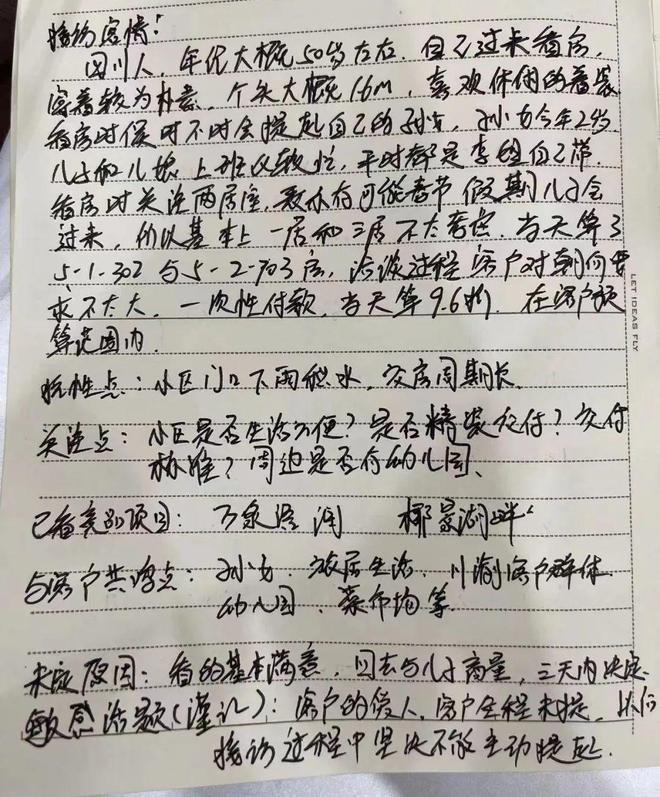 接访客情：
四川人，年纪大概50岁左右，自己过来看房，
穿着较为朴素，个头大概1.6m，喜欢休闲的着装
看房时候时不时会提起自己的孙女，孙女今年2岁
儿子和儿媳上班比较忙，平时都是李姐自己带.
看房时关注两居室，表示有可能春节假期儿子会
过来，所以基本上一居和三居不太考虑，当天算了
5-1-302与5-2-703房，洽谈过程客户对朝向要
求不太大，一次性付款，当天算9.6折，在客户预
算范围内.
抗性点：小区门口下雨积水，交房周期长.
关注点：小区是否生活方便？是否精装交付？交付
标准？周边是否有幼儿园、
已看类别项目：万泉 椰景湖畔
与客户共鸣点：孙女、旅居生活、川渝客户群体
幼儿园、菜市场等.
未定原因：看的基本满意，回去与儿子商量，三天内决定
敏感话题(谨记)：客户的爱人，客户全程未提，以后
接访过程中坚决不能主动提起.
LET IDEAS FLY